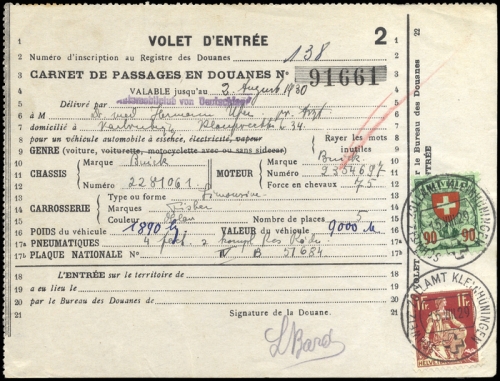 1 VOLET D'ENTRÉE 2
2 Numéro d'inscription au Registre des Douanes 138
3 CARNET DE PASSAGES EN DOUANES No 91661
4 VALABLE jusqu'au 2. August 1930
5 Délivré par Automobilclub von Deutschland
6 à M Dr med Hermann
7 domicilié à 34.
8 pour un véhicule automobile à essence, électricité, vapeur Rayer les mots inutiles
9 GENRE (voiture, voiturette, motocyclette avec ou sans sidecar)
10 Marque Buick Marque Buick
11 CHASSIS MOTEUR No 2354697
12 No 2281061 Force en chevaux 75
13 Type ou forme Limousine
14 CARROSSERIE Marque Fisher
15 Couleur Nombre de places 5
16 POIDS du véhicule 1890 kg VALEUR du véhicule 9000 M
17a PNEUMATIQUES 4 2 kompl. Res. Räder
17b PLAQUE NATIONALE No IV B 51684
18 L'ENTRÉE sur le territoire de
19 a eu lieu le
20 par le Bureau des Douanes de
21 Signature de la Douane.
22
r le Bureau des Douanes
VOLET
ENTRÉE
90 90
1 Fr. 1 Fr.
HELVETIA
AMT KLEINHÜNINGEN
SCHWEIZ. ZOLLAMT KLEINHÜNINGEN